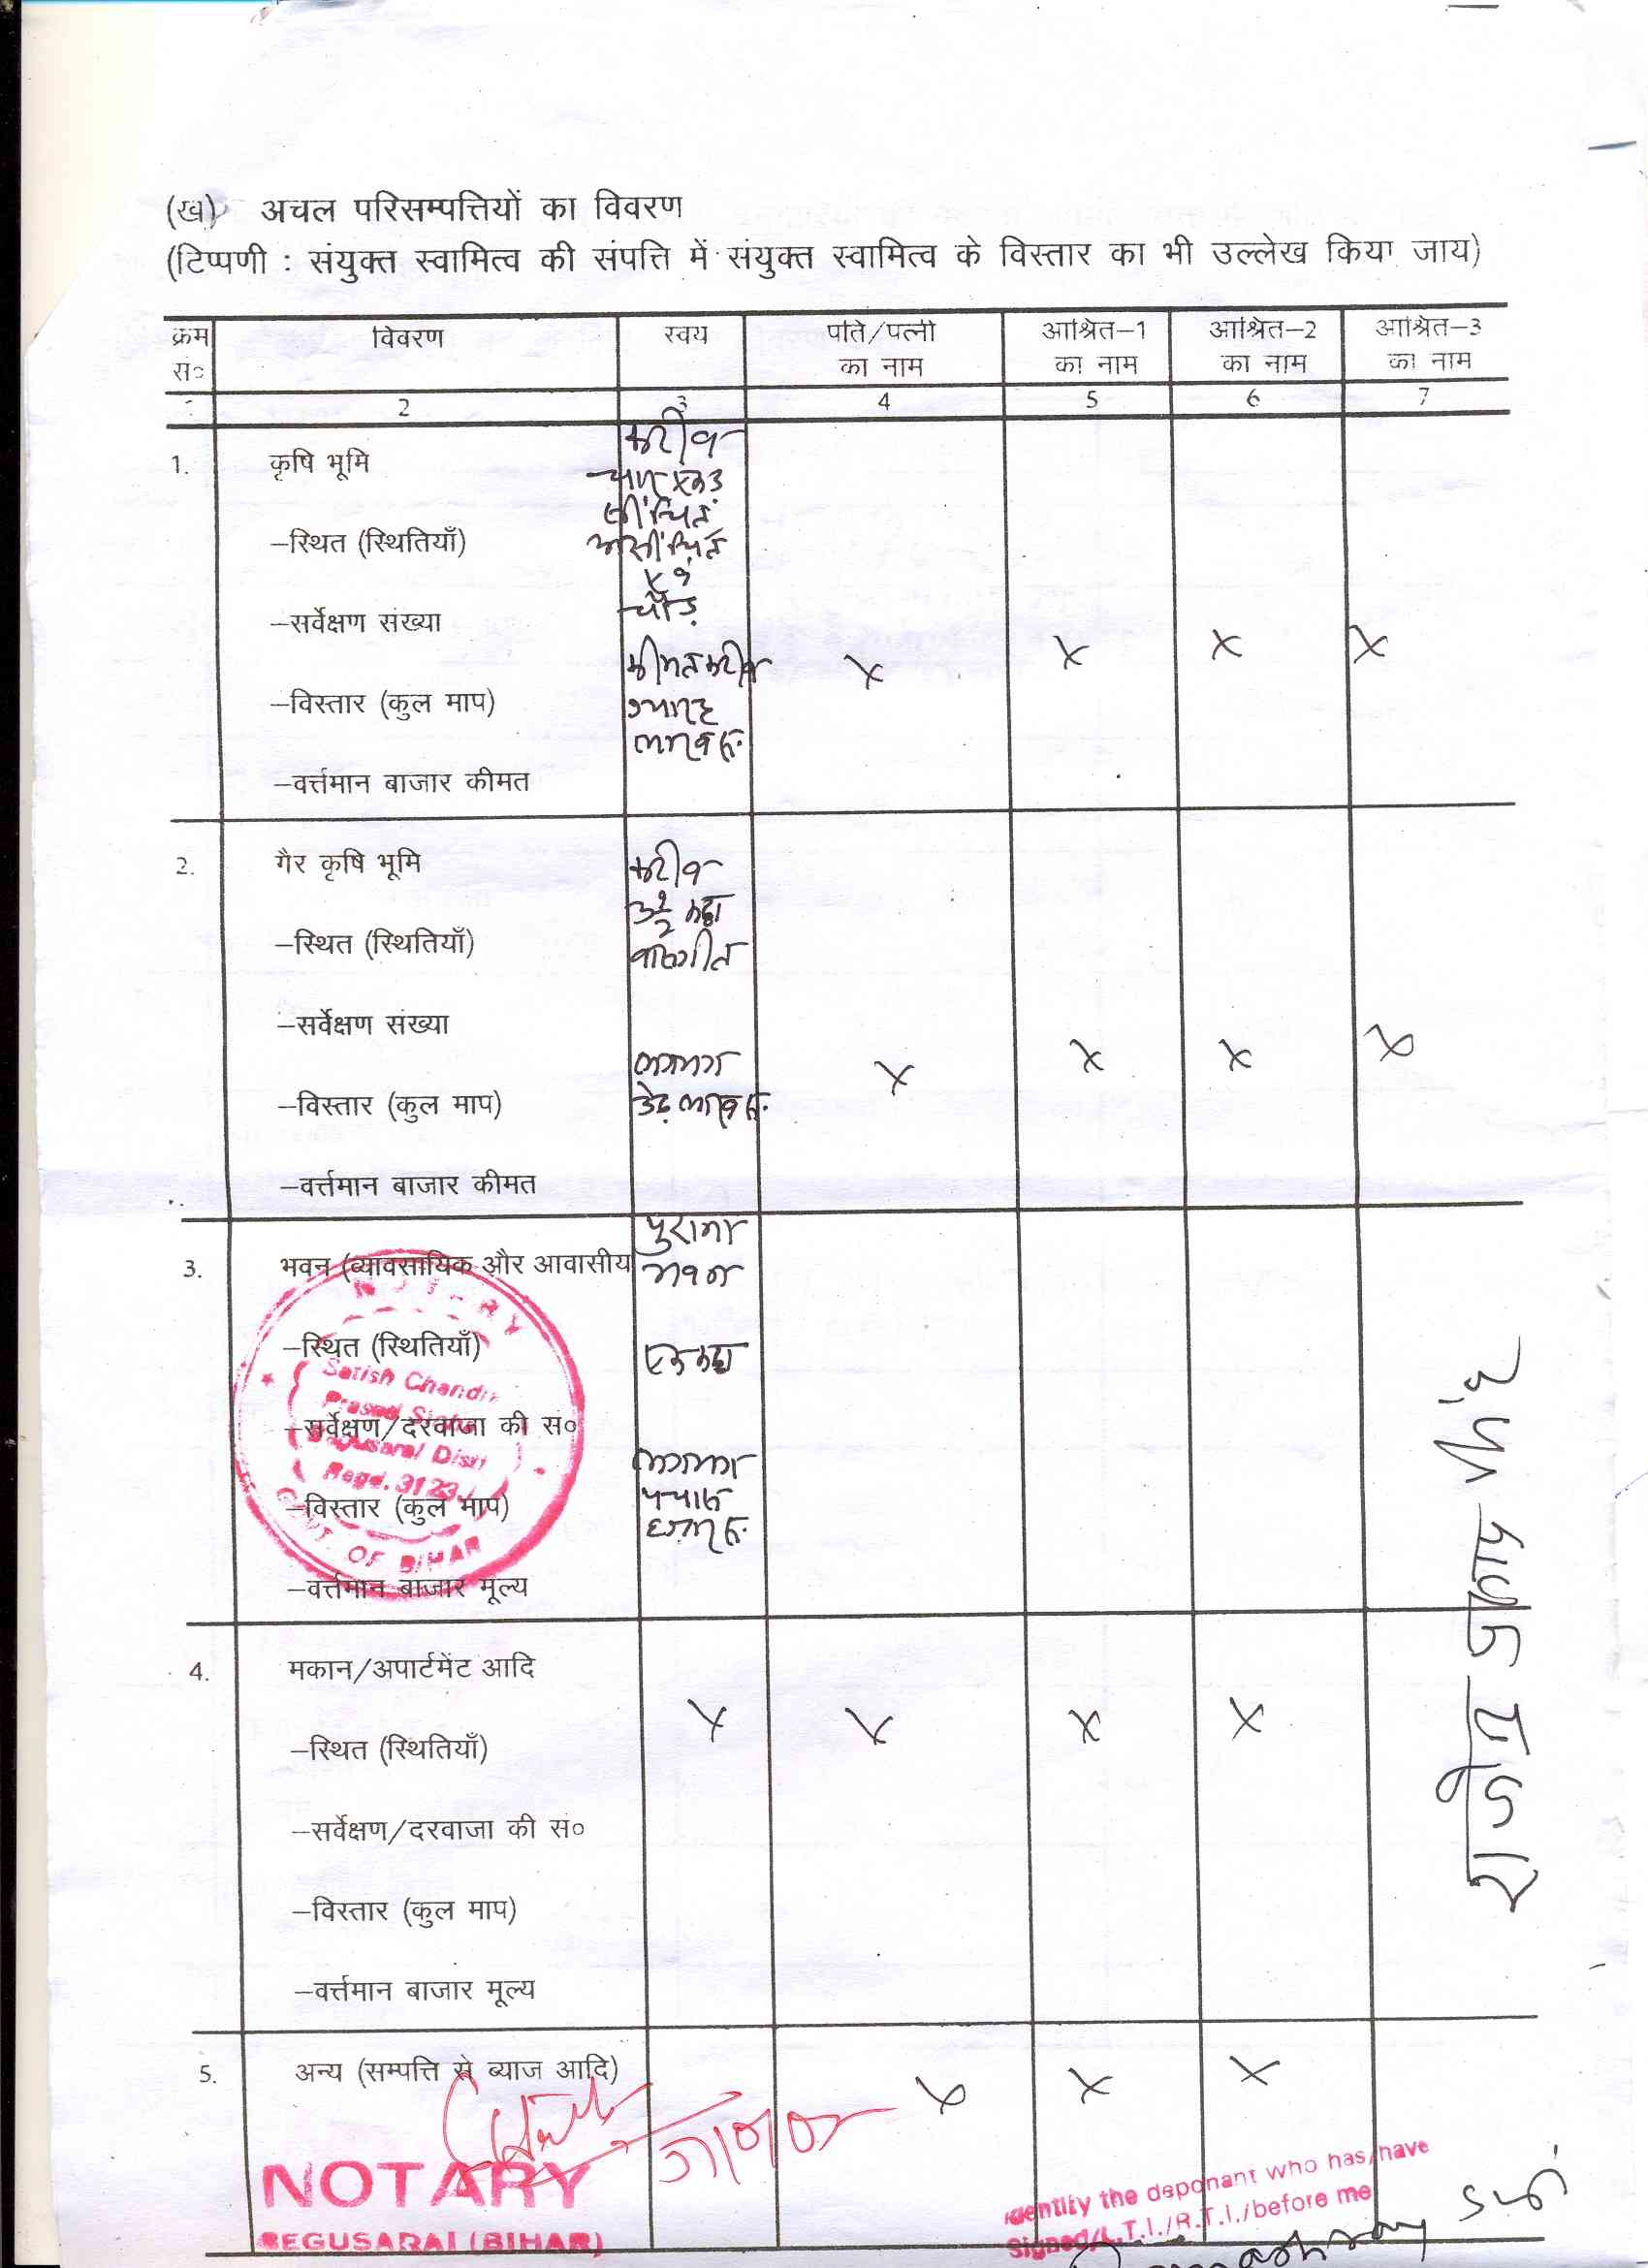 (ख) अचल परिसम्पत्तियों का विवरण
(टिप्पणी : संयुक्त स्वामित्व की संपत्ति में संयुक्त स्वामित्व के विस्तार का भी उल्लेख किया जाय)
क्रम सं० विवरण स्वयं पति/पत्नी का नाम आश्रित-1 का नाम आश्रित-2 का नाम आश्रित-3 का नाम
2 3 4 5 6 7
1. कृषि भूमि
-स्थित (स्थितियाँ)
-सर्वेक्षण संख्या
-विस्तार (कुल माप)
-वर्त्तमान बाजार कीमत
करीब
चार एकड़
सींचित
असींचित
एवं
चौड़
कीमत करीब
ग्यारह
लाख रू.
X X X X
2. गैर कृषि भूमि
-स्थित (स्थितियाँ)
-सर्वेक्षण संख्या
-विस्तार (कुल माप)
-वर्त्तमान बाजार कीमत
करीब
3 1/2 कट्ठा
वासगीत
लगभग
डेढ़ लाख रू.
X X X X
3. भवन (व्यावसायिक और आवासीय
-स्थित (स्थितियाँ)
-सर्वेक्षण/दरवाजा की सं०
-विस्तार (कुल माप)
-वर्त्तमान बाजार मूल्य
पुराना
भवन
एक कट्ठा
लगभग
पचास
हजार रू.
NOTARY
Satish Chandra
Prasad
Begusarai Distt
Regd. 3123
GOVT. OF BIHAR
4. मकान/अपार्टमेंट आदि
-स्थित (स्थितियाँ)
-सर्वेक्षण/दरवाजा की सं०
-विस्तार (कुल माप)
-वर्त्तमान बाजार मूल्य
X X X X
5. अन्य (सम्पत्ति से ब्याज आदि)
X X X
NOTARY
BEGUSARAI (BIHAR)
identify the deponant who has/have
Signed/L.T.I./R.T.I./before me
राजेन्द्र प्रसाद सिंह